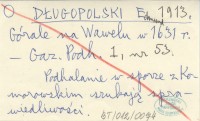 O DŁUGOPOLSKI Edmund 1913.
Górale na Wawelu w 1631 r.
— Gaz. Podh. 1, nr 53.
Podhalanie w sporze z Ko-
morowskim szukają spra-
wiedliwości.